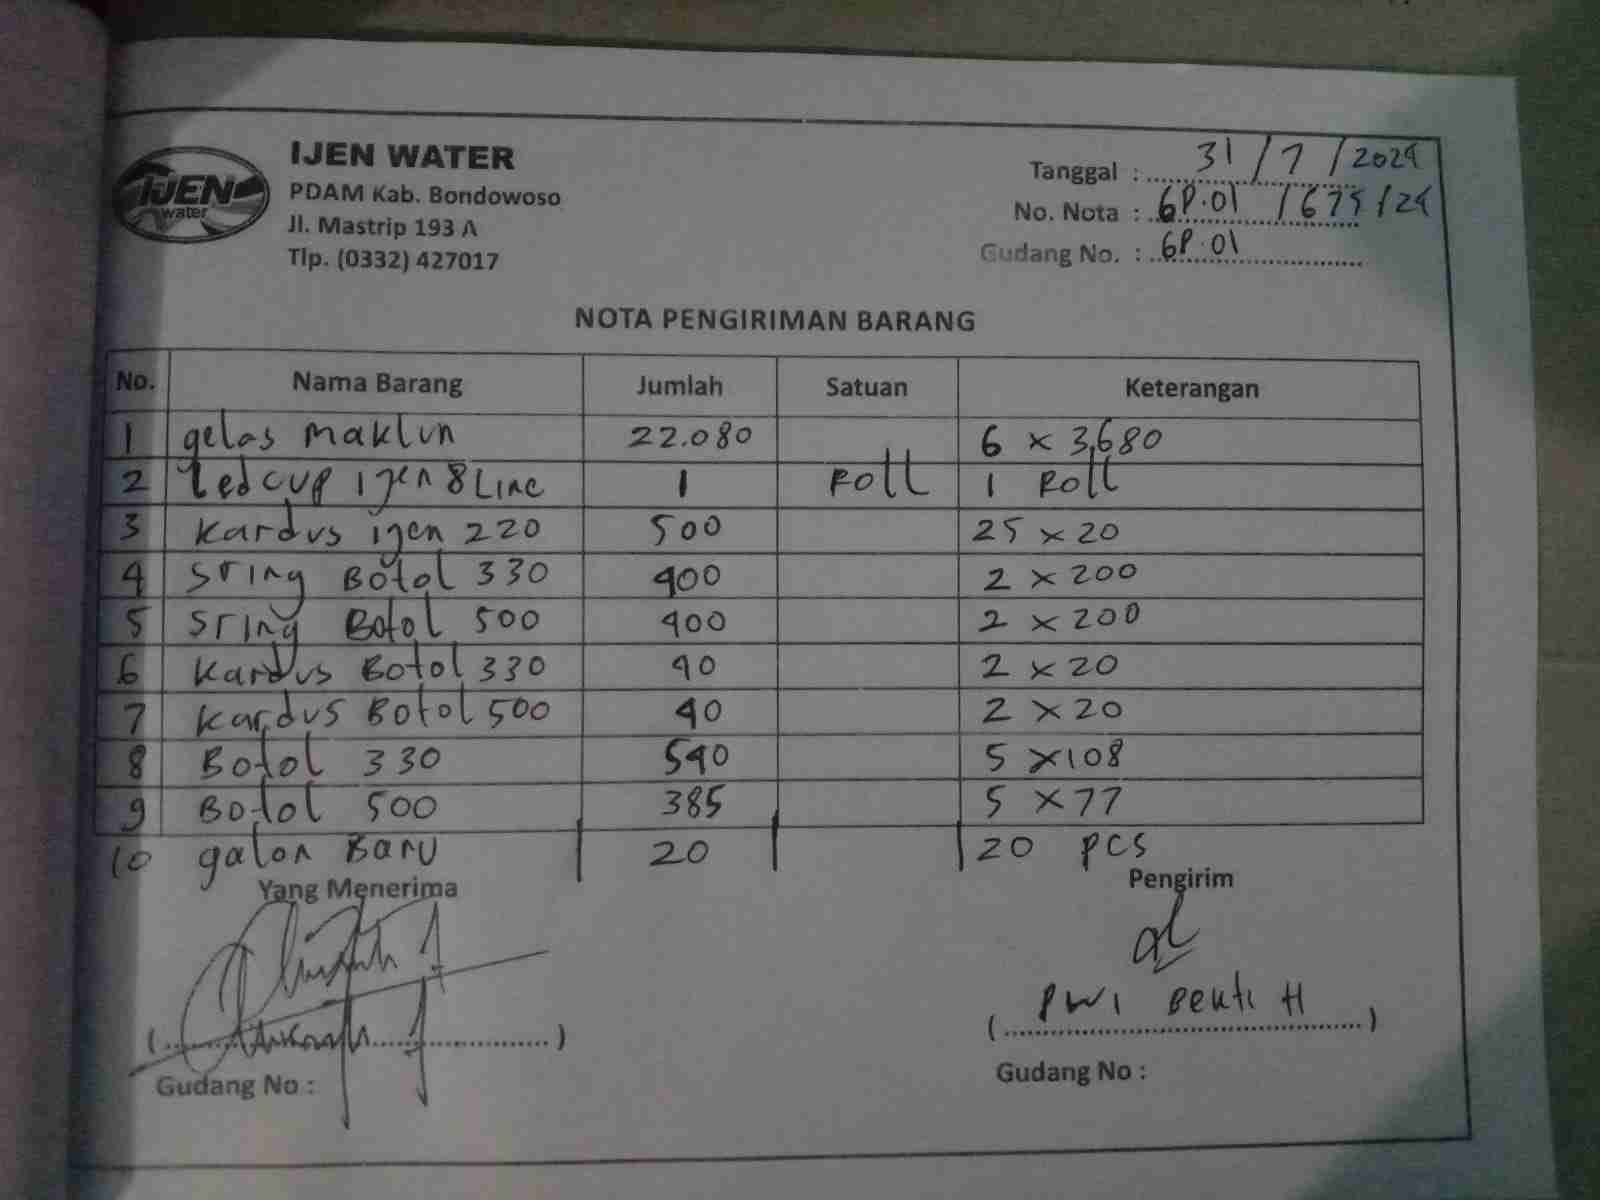 IJEN
water
IJEN WATER
PDAM Kab. Bondowoso
Jl. Mastrip 193 A
Tlp. (0332) 427017
Tanggal : 31 / 7 / 2024
No. Nota : GP.01 / 674 / 24
Gudang No. : GP.01
NOTA PENGIRIMAN BARANG
No. Nama Barang Jumlah Satuan Keterangan
1 gelas maklun 22.080 6 x 3,680
2 Led cup ijen 8 Line 1 Roll 1 Roll
3 kardus ijen 220 500 25 x 20
4 Sring Botol 330 400 2 x 200
5 Sring Botol 500 400 2 x 200
6 kardus Botol 330 40 2 x 20
7 kardus Botol 500 40 2 x 20
8 Botol 330 540 5 x 108
9 Botol 500 385 5 x 77
10 galon Baru 20 20 pcs
Yang Menerima Pengirim
(....................) (PWI H)
Gudang No : Gudang No :